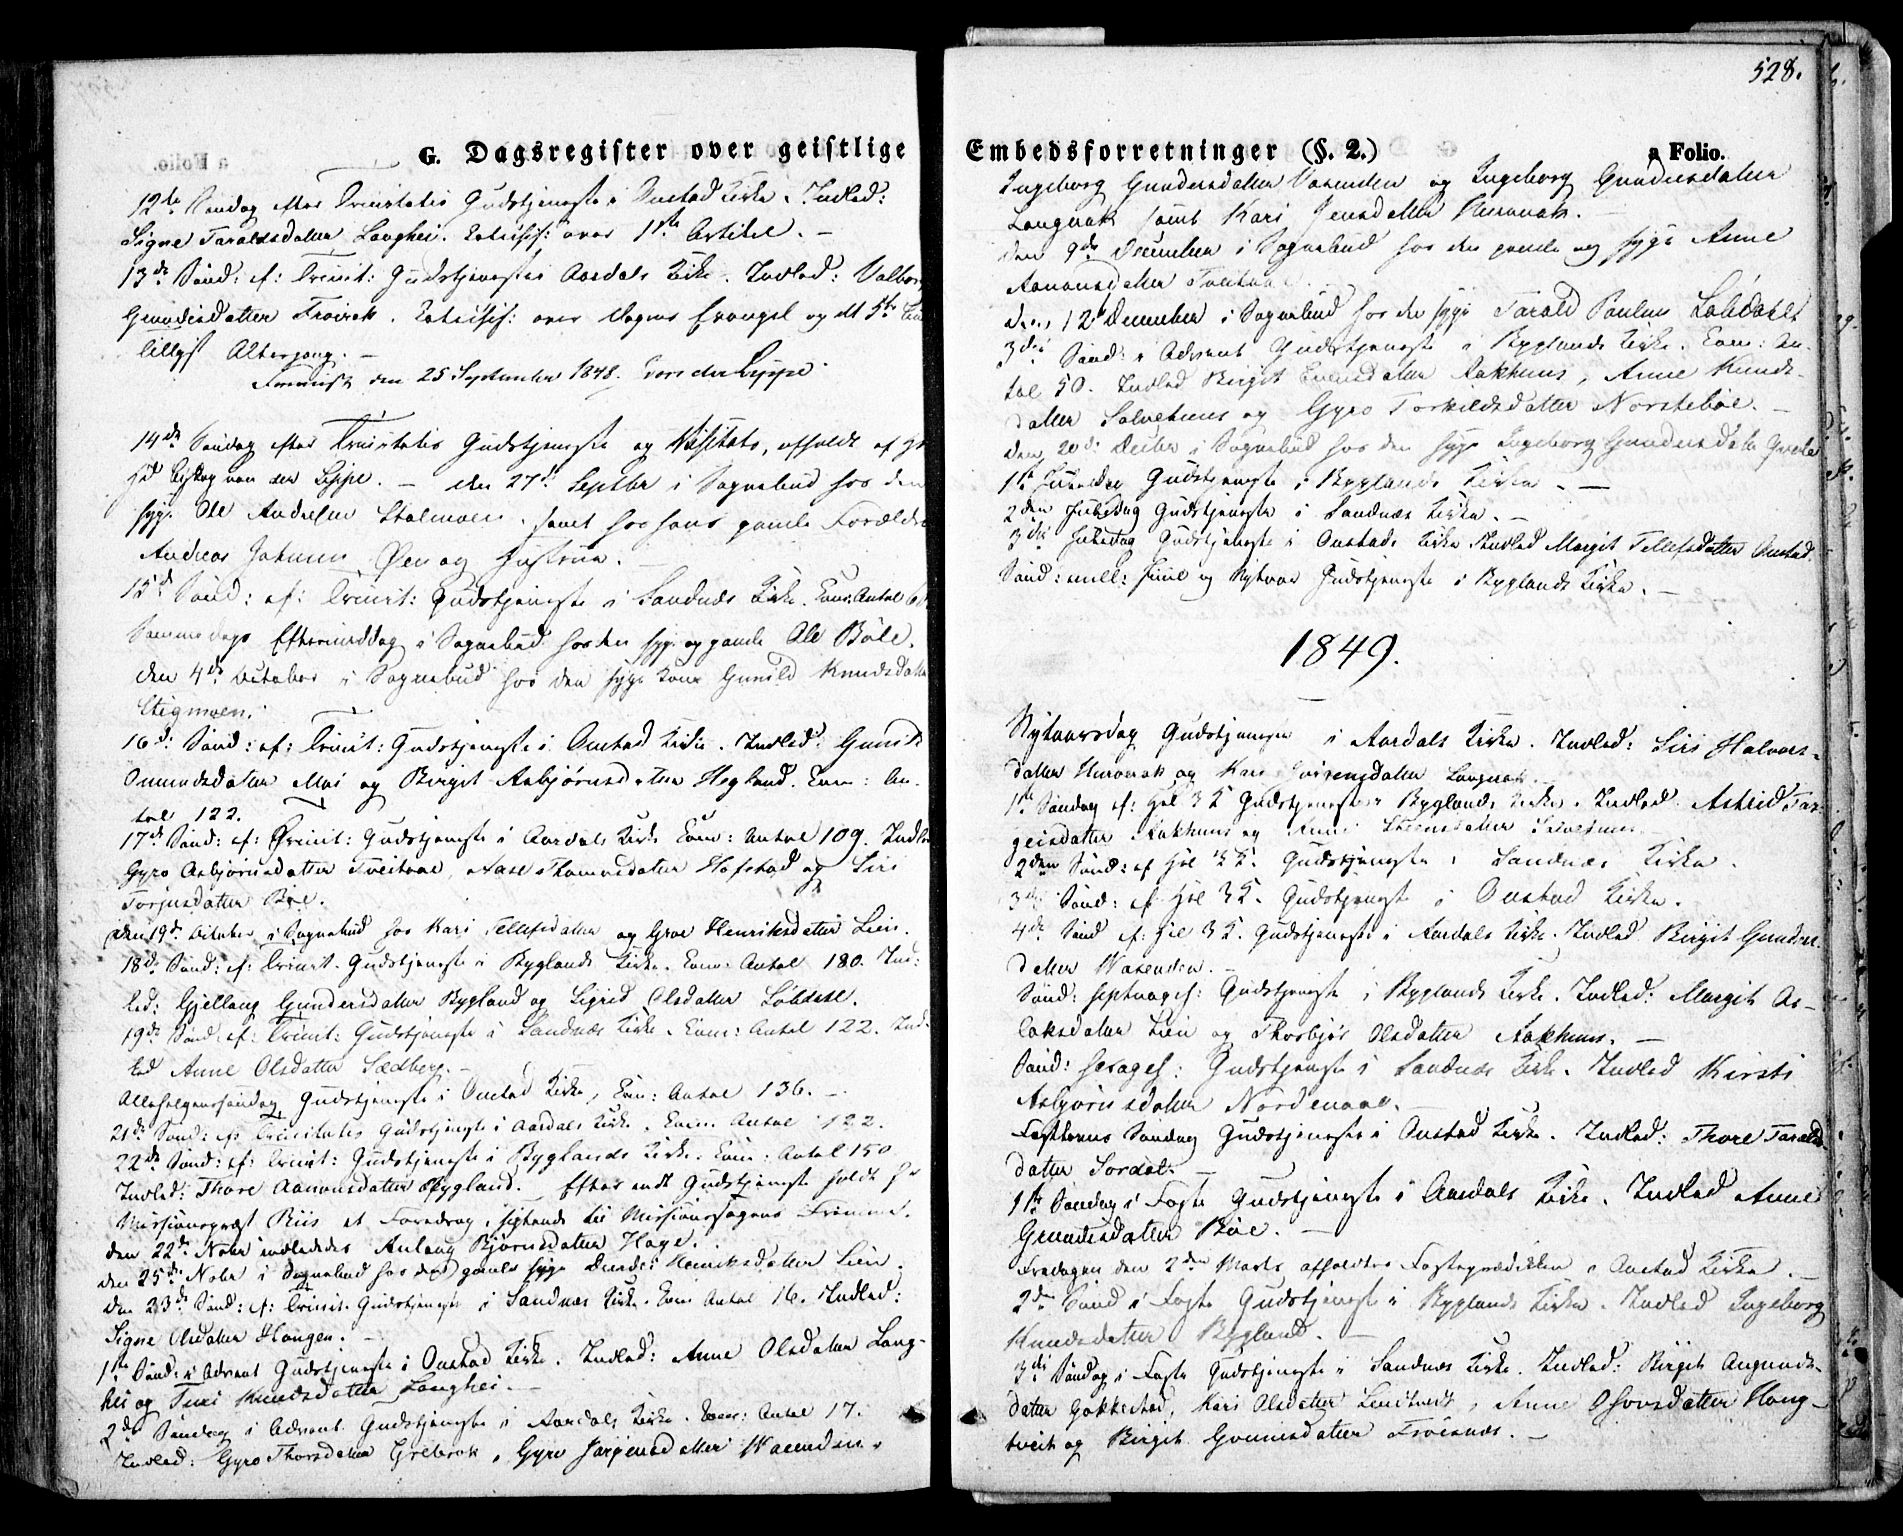 G. Dagsregister over geistlige
12te Søndag efter Trinitatis Gudstjeneste i Austad Kirke. Indled:
Signe Taraldsdatter Langhei. Catechis: over 1ste Artikel. –
13de Sønd: ef: Trinit: Gudstjeneste i Aardals Kirke. Indled: Valbor
Gundersdatter Frøirak. Catechis: over Dagens Evangel og det 5te
tillige Altergang. –
den 25 September 1848. von der Lippe.
14de Søndag efter Trinitatis Gudstjeneste og Visitats, afholdt af
Biskop von der Lippe. – den 27de Septbr i Sognebud hos den
syge Ole Andersen Stolmoen, samt hos hans gamle Forældre
Andreas Johnsen Øen og Hustrue.
15de Sønd: ef: Trinit: Gudstjeneste i Sandnæs Kirke. Com: Antal
Samme Dags Eftermiddag i Sognebud hos den syge og gamle Ole Bøle.
den 4de October i Sognebud hos den syge Kone Gunild Knudsdatter
Stigmoen.
16de Sønd: ef: Trinit: Gudstjeneste i Austad Kirke. Indled: Gunild
Omundsdatter Moi og Birgit Asbjørnsdatter Hegland. Com: An-
tal 122.
17de Sønd: ef: Trinit: Gudstjeneste i Aardals Kirke Com: Antal 109. Indled
Gyro Asbjørnsdatter Tveitraae, Aase Thomasdatter Hofstad og Siri
Torjusdatter Bøe.
den 19de October i Sognebud hos Kari Tellefsdatter og Groe Henriksdatter Lien.
18de Sønd: ef: Trinit. Gudstjeneste i Byglands Kirke. Com: Antal 180. Ind:
led: Gjellaug Gundersdatter Bygland og Sigrid Olsdatter Lobdal.
19de Sønd: ef: Trinit: Gudstjeneste i Sandnæs Kirke. Com: Antal 122. Ind-
led Anne Olsdatter Sædberg. –
Allehelgenssøndag Gudstjeneste i Austad Kirke, Com: Antal 136. –
21de Sønd: ef: Trinitatis Gudstjeneste i Aardals Kirke. Com: Antal 122.
22de Sønd: ef: Trinit: Gudstjeneste i Byglands Kirke. Com: Antal 150
Indled: Thore Aanonsdatter Bygland. Efter endt Gudstjeneste holdt Hr
Missionspræst Riis et Foredrag, sigtende til Missionssagens Fremme.
den 22de Novbr indlededes Anlaug Bjørnsdatter Hage.
den 25de Novbr i Sognebud hos den gamle syge Henriksdatter Lien.
den 23de Sønd: ef: Trinit. Gudstjeneste i Sandnæs Kirke. Com Antal 16. Indled:
Signe Olsdatter Haugen. –
1ste Sønd: i Advent Gudstjeneste i Austad Kirke. Indled: Anne Olsdatter Lang-
hei og Turi Knudsdatter Langhei. –
2den Søndag i Advent. Gudstjeneste i Aardals Kirke. Com: Antal 17.
Indled: Gyro Thorsdatter Grebrok, Gyro Jørgensdatter Waenden,
528.
Embedsforretninger (§. 2.)
a Folio.
Ingeborg Gundersdatter Vasenden og Ingeborg Gundersdatter
Langerak samt Kari Jensdatter Huronak.
den 9de December i Sognebud hos den gamle og syge Anne
Aanonsdatter Tveitraae.
den 12 December i Sognebud hos den syge Tarald Paulsen Lobdahl
3die Sønd: i Advent Gudstjeneste i Byglands Kirke. Com: An-
tal 50. Indled Birgit Evensdatter Aakhuus, Anne Knuds-
datter Solvehuus og Gyro Torkildsdatter Norstebøe. –
den 20de Decbr i Sognebud hos den syge Ingeborg Gundersdatter
1ste Juledag Gudstjeneste i Byglands Kirke. –
2den Juledag Gudstjeneste i Sandnæs Kirke. –
3die Juledag Gudstjeneste i Austads Kirke. Indled Margit Tellefsdatter Austad.
Sønd: mell: Juul og Nytaar Gudstjeneste i Byglands Kirke. –
1849.
Nytaarsdag Gudstjeneste i Aardals Kirke. Indled: Siri Halvors-
datter Huronak og Kari Langerak.
1ste Søndag ef: Hel 3 K Gudstjeneste i Byglands Kirke. Indled Astrid Tar-
geisdatter Aakhuus og Anne
2den Sønd: ef Hel 3 K. Gudstjeneste i Sandnæs Kirke.
3die Sønd: ef Hel 3 K. Gudstjeneste i Austad Kirke.
4de Sønd ef: Hel 3 K. Gudstjeneste i Aardals Kirke. Indled Birgit Gunders-
datter Wasenden. –
Sønd: septuages: Gudstjeneste i Byglands Kirke. Indled: Margit As-
laksdatter Lien og Thorbjør Olsdatter Aakhuus. –
Sønd: sexages: Gudstjeneste i Sandnæs Kirke. Indled Kirsti
Asbjørnsdatter Nordenaae. –
Fastelavns Søndag Gudstjeneste i Austad Kirke. Indled: Thore Taralds-
datter Sordal. –
1ste Søndag i Faste Gudstjeneste i Aardals Kirke. Indled Anne
Gundersdatter Bøe. –
Fredagen den 2den Marts afholdtes Fasteprædiken i Austad Kirke. –
2den Sønd i Faste Gudstjeneste i Byglands Kirke. Indled Ingeborg
Knudsdatter Bygland. –
3die Søndag i Faste Gudstjeneste i Sandnæs Kirke. Indled: Birgit Augunds-
datter Gakkestad, Kari Olsdatter Lendtvedt, Anne Osovsdatter Haug-
tveit og Birgit Gunnersdatter Frøisnæs. –